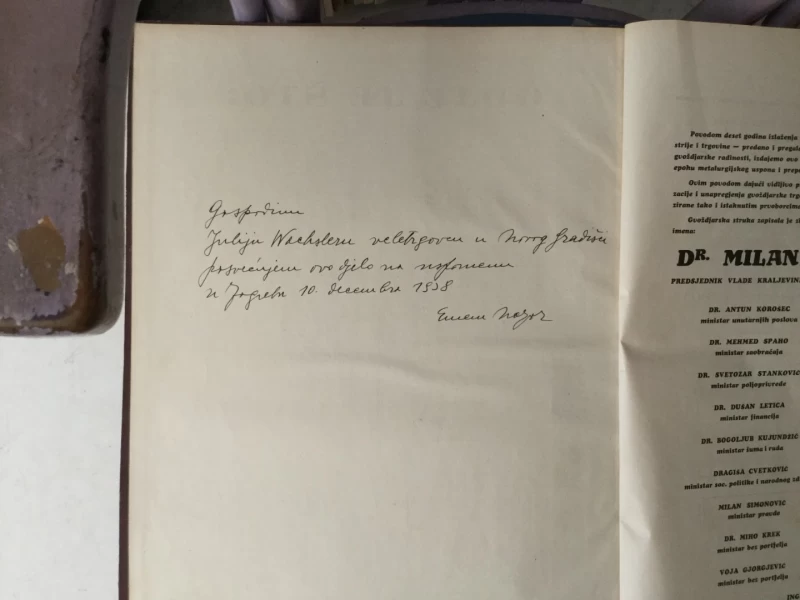 Gospodinu
Juliju Wachsleru veletrgovcu u Novoj Gradiški
posvećujem ovo djelo na uspomenu
u Zagrebu 10. decembra 1938
Povodom deset godina izlaženja
strije i trgovine — predano i
gvoždjarske radinosti, izdajemo ovo
epahu metalurgijskog uspona i
Ovim povodom dajući vidljivo
zacije i unapregjenja gvoždjarske
zirane tako i istaknutim prvoborcima
Gvoždjarska struka zapisala je
imena:
DR. MILAN
PREDSJEDNIK VLADE
DR. ANTUN KOROŠEC
ministar unutarnjih poslova
DR. MEHMED SPAHO
ministar saobraćaja
DR. SVETOZAR STANKOVIĆ
ministar poljoprivrede
DR. DUŠAN LETICA
ministar financije
DR. BOGOLJUB KUJUNDŽIĆ
ministar šuma i ruda
DRAGIŠA CVETKOVIĆ
ministar soc. politike i narodnog
MILAN SIMONOVIĆ
ministar pravde
DR. MIHO KREK
ministar bez portfelja
VOJA GJORGJEVIĆ
ministar bez portfelja